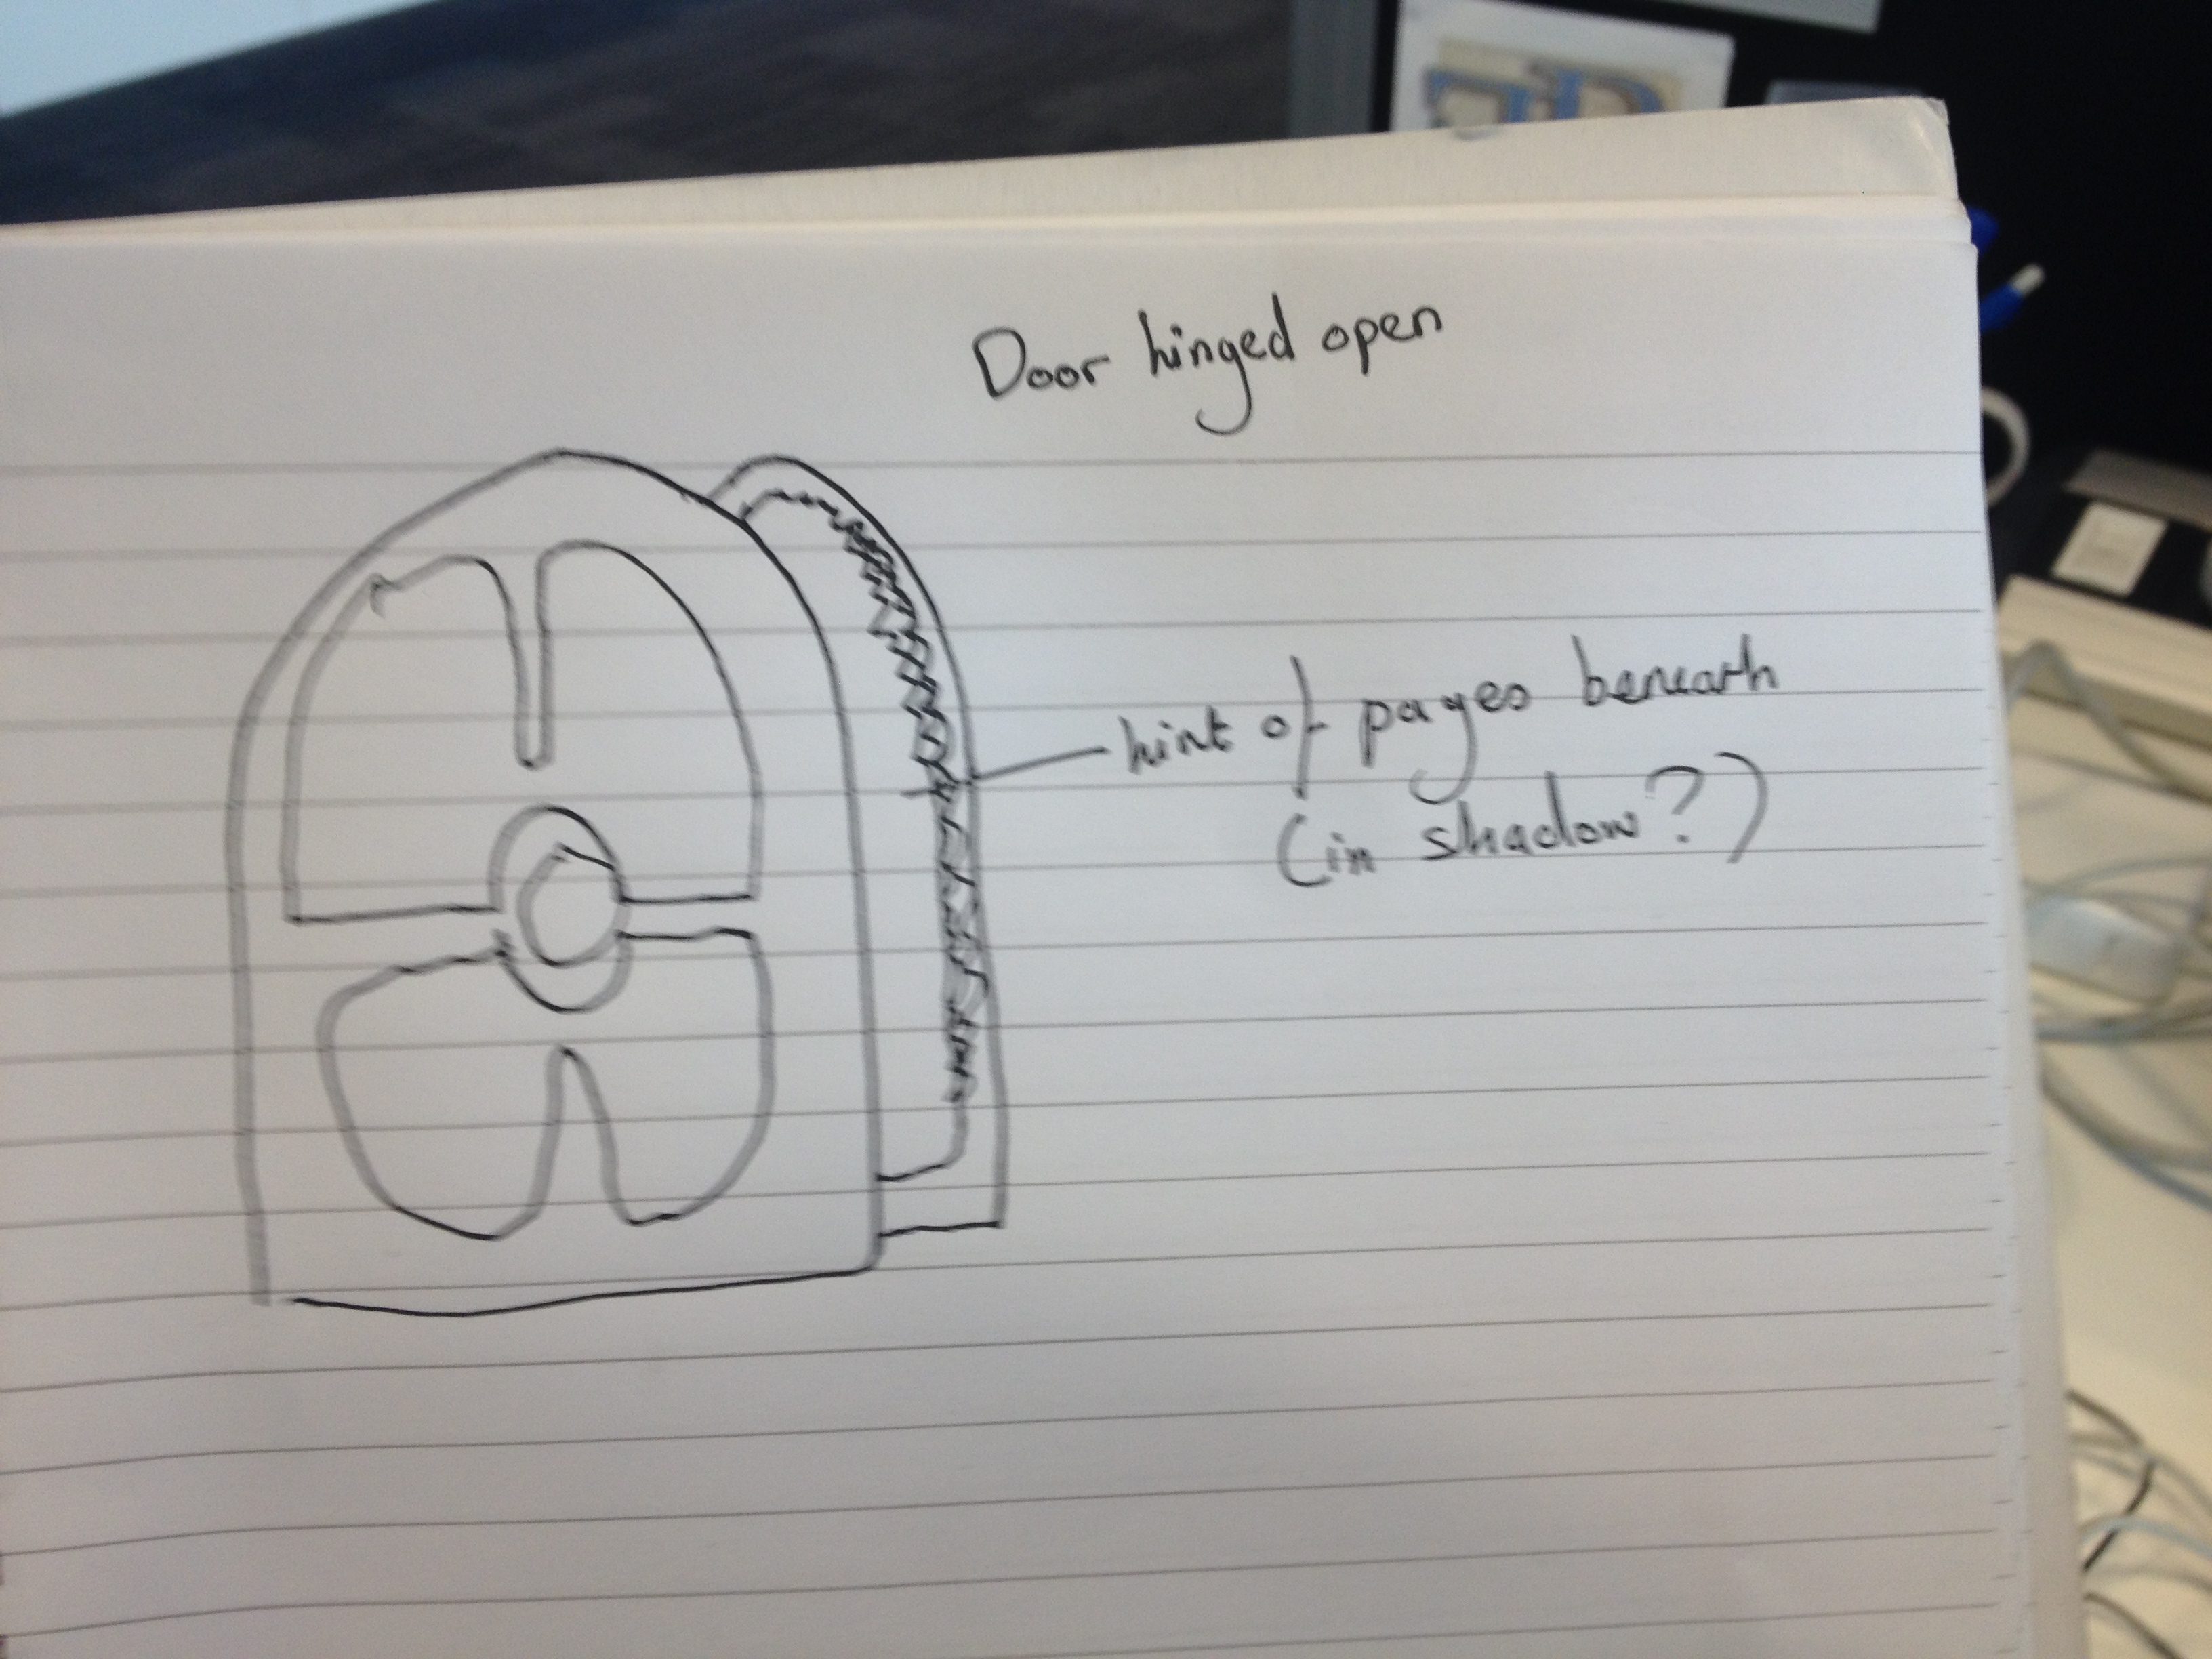 Door hinged open
hint of pages beneath
(in shadow?)